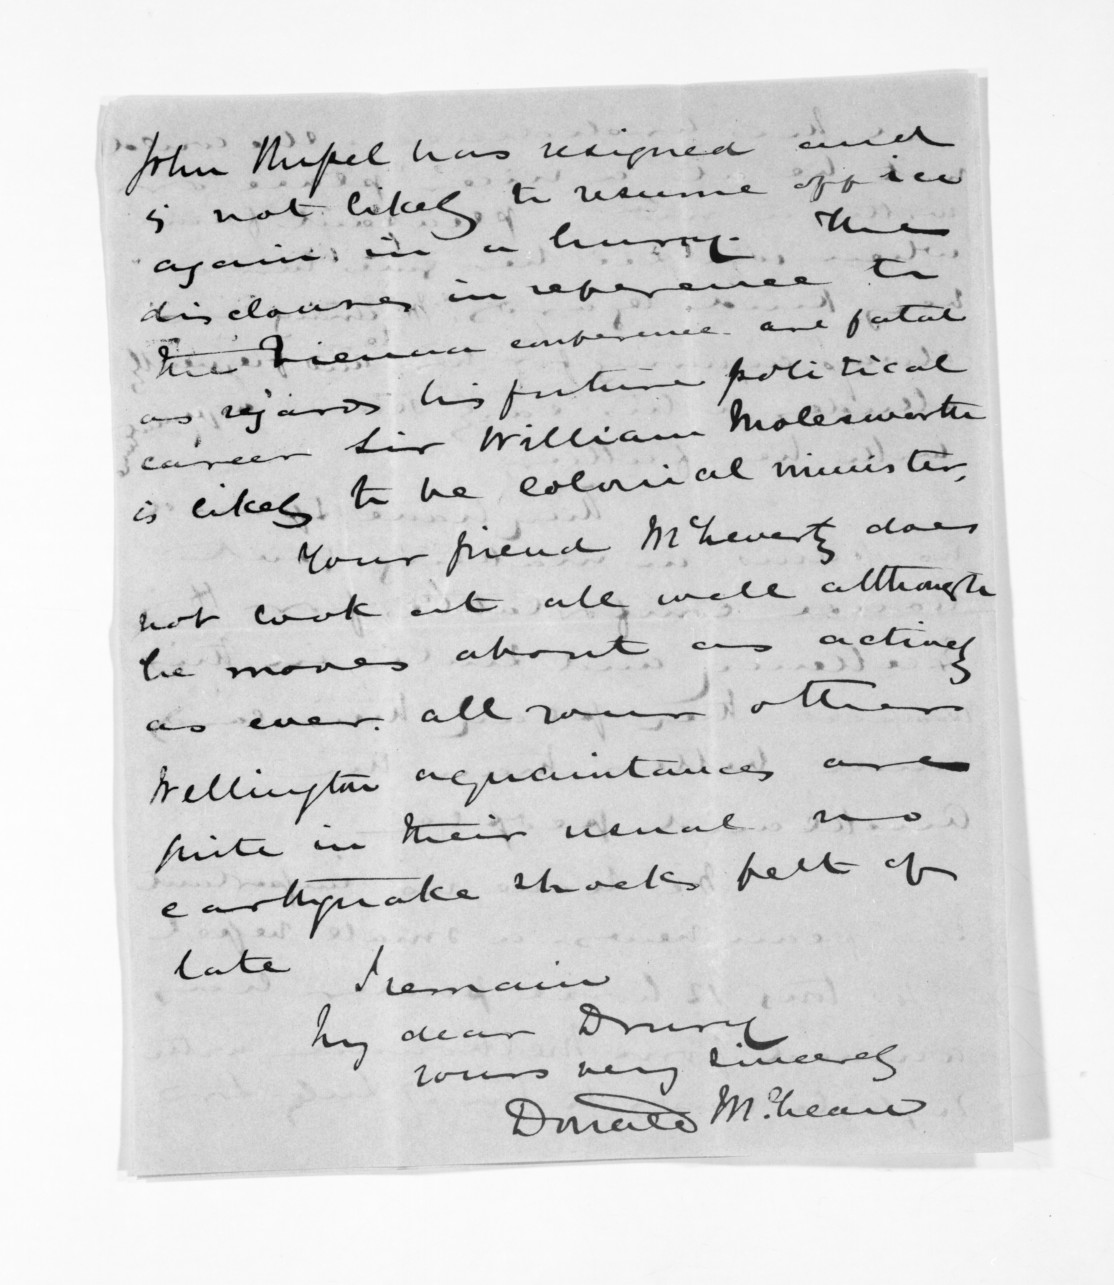 John Russel has resigned and
is not likely to resume office
again in a hurry. The
disclosures in reference to
the Vienna conference are fatal
as regards his future political
career Sir William Molesworth
is likely to be Colonial minister,
Your friend does
not look at all well although
he moves about as actively
as ever. all your other
Wellington aquaintances are
quite in their usual no
earthquake shocks felt of
late I remain
My dear Drury
yours very sincerely
Donald McLean